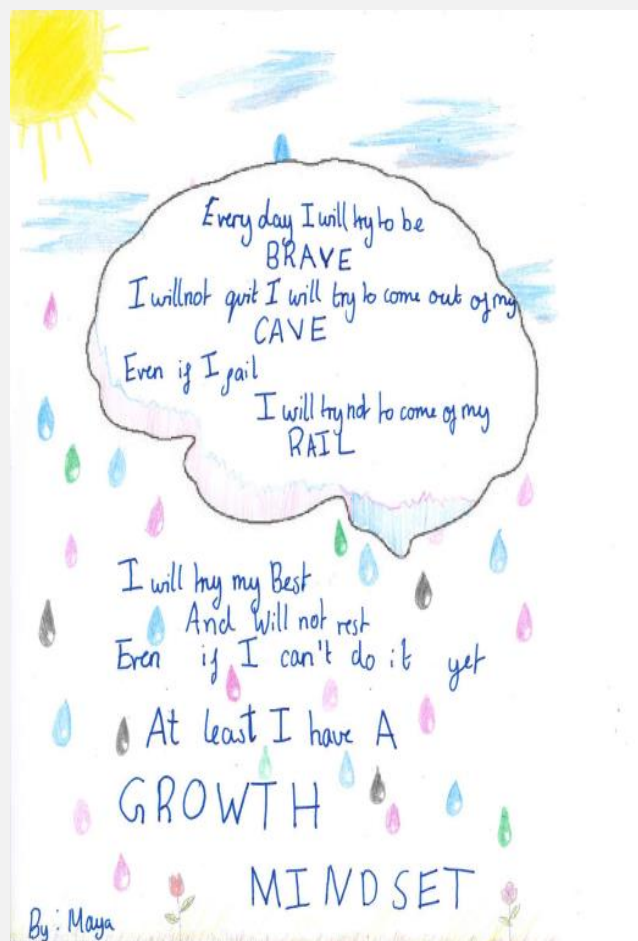 Every day I will try to be
BRAVE
I will not quit I will try to come out of my
CAVE
Even if I fail
I will try not to come of my
RAIL
I will try my Best
And Will not rest
Even if I can't do it yet
At least I have A
GROWTH
MINDSET
By: Maya